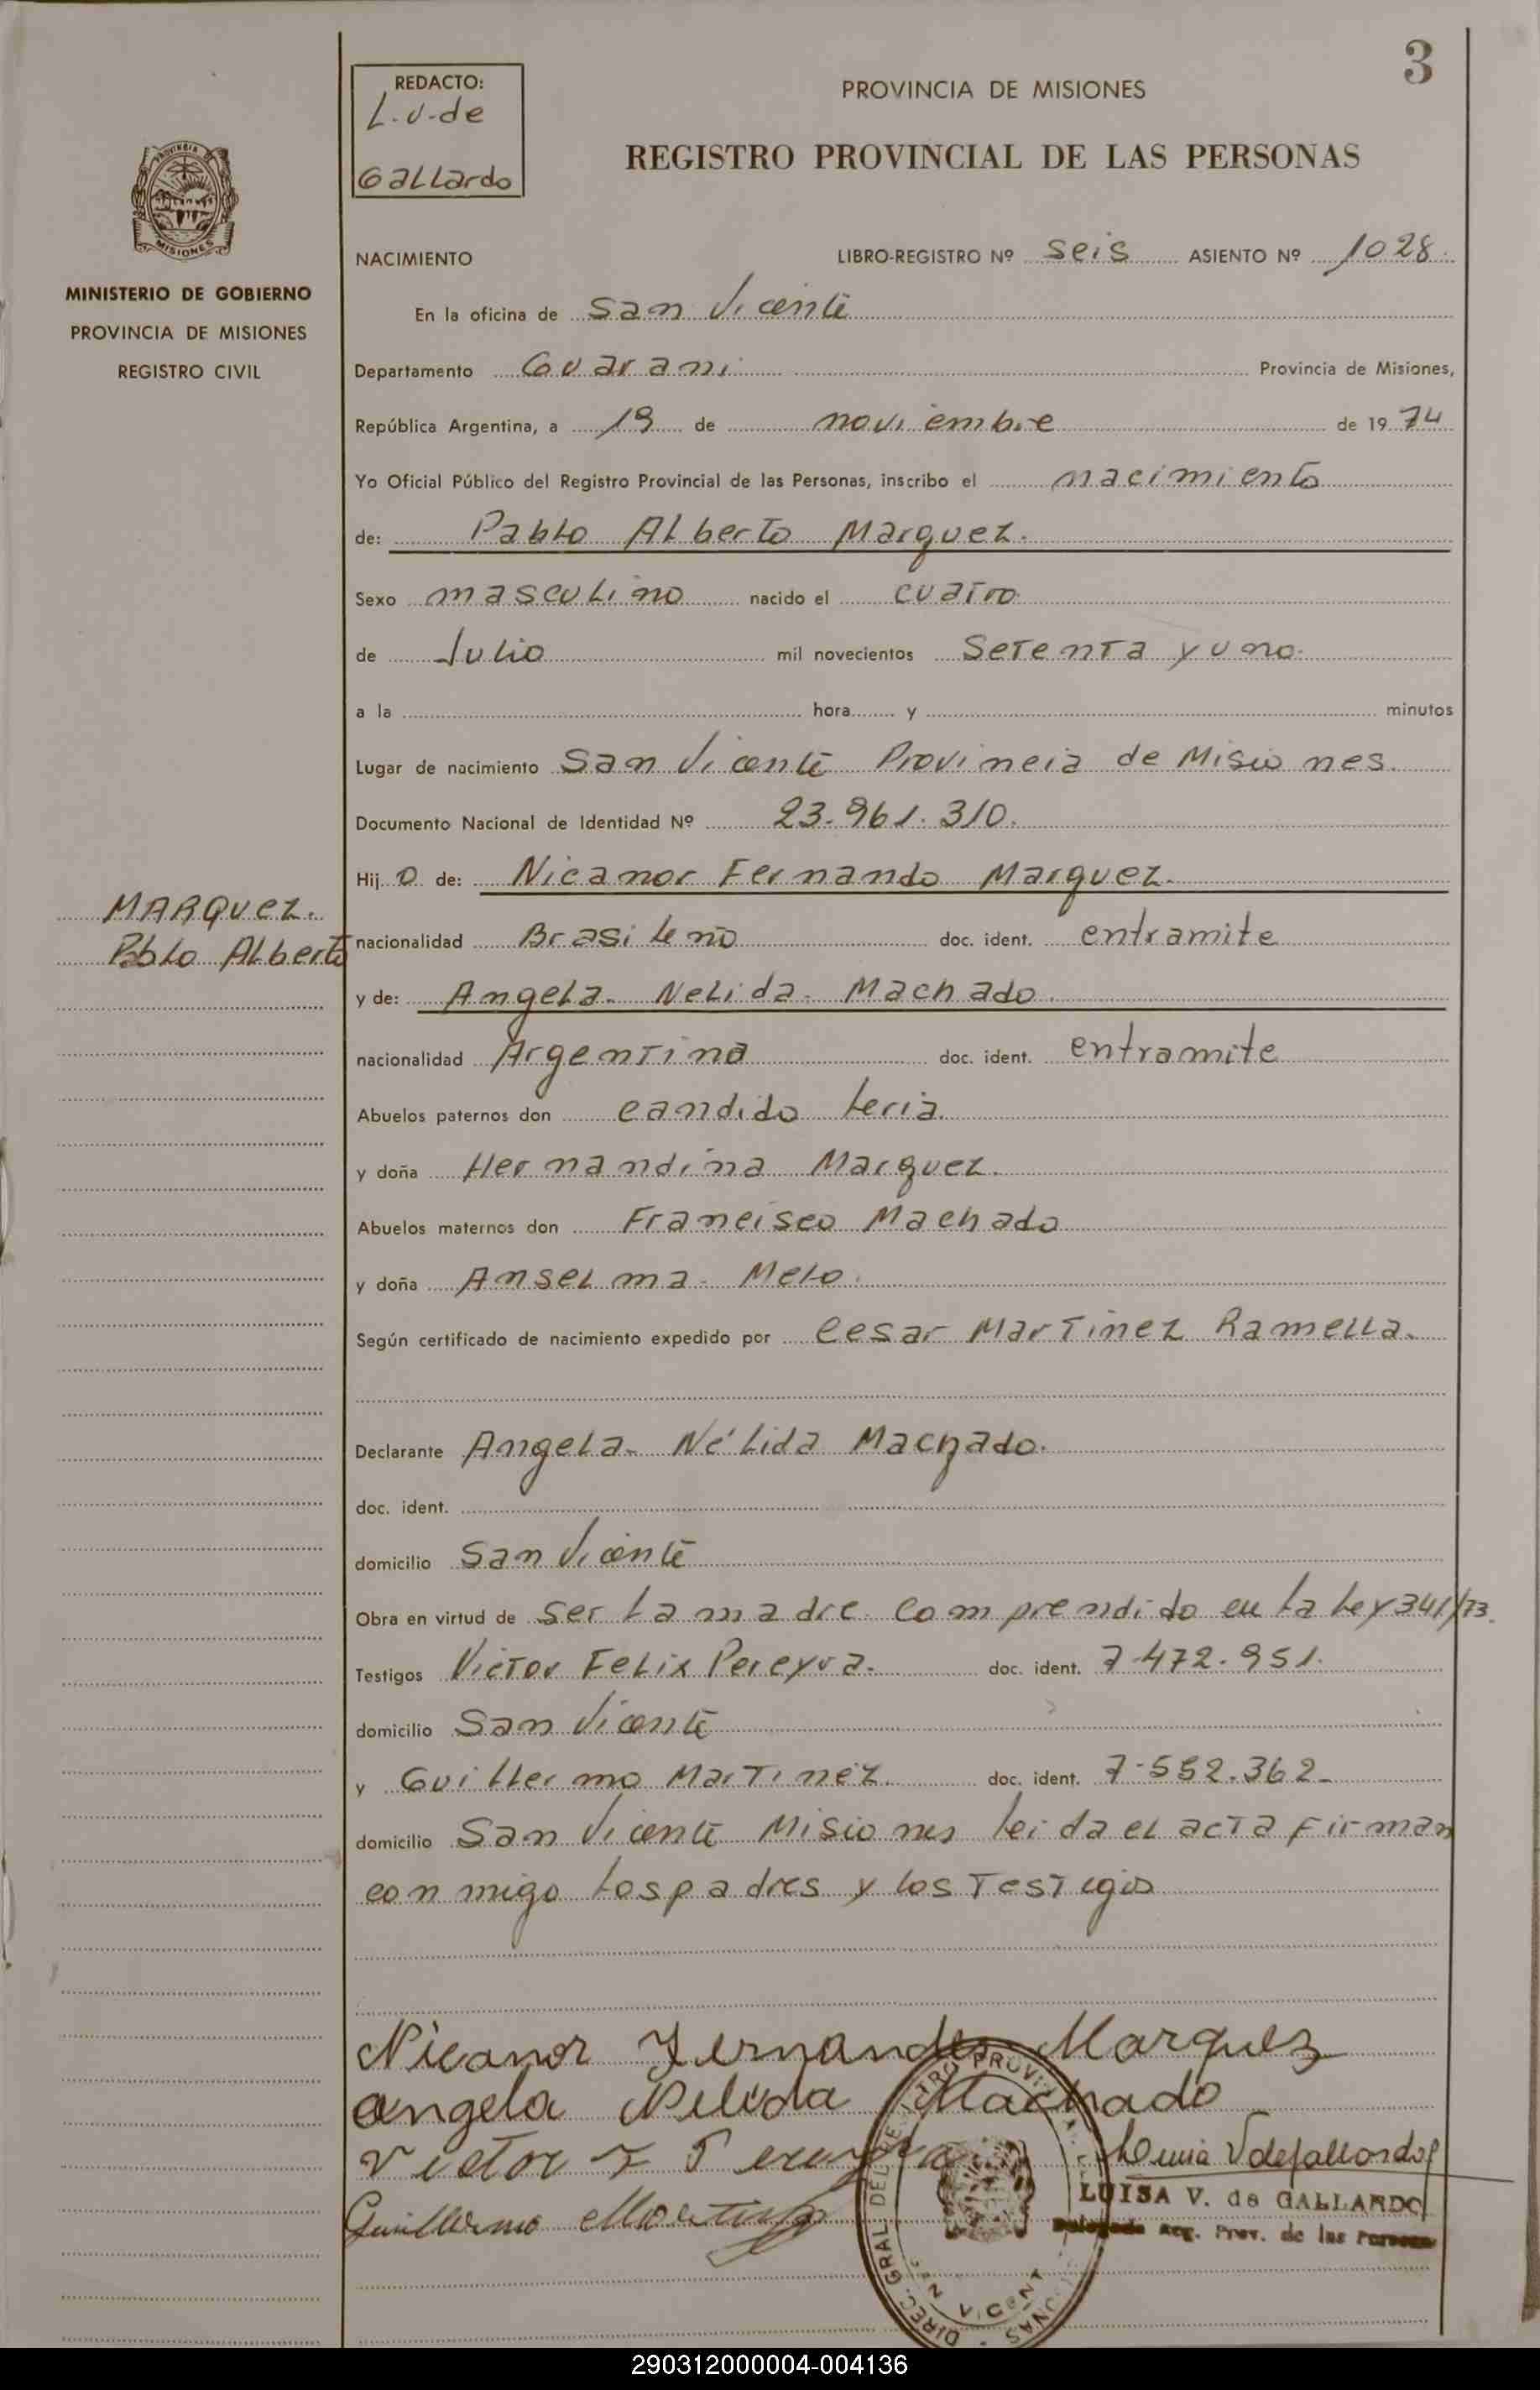 3
REDACTO:
L.V. de
Gallardo
PROVINCIA DE MISIONES
REGISTRO PROVINCIAL DE LAS PERSONAS
PROVINCIA DE
MISIONES
MINISTERIO DE GOBIERNO
PROVINCIA DE MISIONES
REGISTRO CIVIL
NACIMIENTO LIBRO-REGISTRO Nº seis ASIENTO Nº 1028.
En la oficina de San Vicente
Departamento Guarani Provincia de Misiones,
República Argentina, a 19 de noviembre de 1974
Yo Oficial Público del Registro Provincial de las Personas, inscribo el nacimiento
de: Pablo Alberto Marquez.
Sexo masculino nacido el cuatro
de Julio mil novecientos Setenta y uno.
a la hora y minutos
Lugar de nacimiento San Vicente Provincia de Misiones.
Documento Nacional de Identidad Nº 23.961.310.
Hijo de: Nicanor Fernando Marquez.
MARQUEZ.
Pablo Alberto
nacionalidad Brasileño doc. ident. entramite
y de: Angela Nelida Machado.
nacionalidad Argentina doc. ident. entramite
Abuelos paternos don candido Leria.
y doña Hernandina Marquez.
Abuelos maternos don Francisco Machado
y doña Anselma Melo.
Según certificado de nacimiento expedido por Cesar Martinez Ramella.
Declarante Angela Nélida Machado.
doc. ident.
domicilio San Vicente
Obra en virtud de ser la madre comprendido en la Ley 341/73.
Testigos Victor Felix Pereyra. doc. ident. 7.472.951.
domicilio San Vicente
y Guillermo Martinez. doc. ident. 7.552.362.
domicilio San Vicente Misiones leida el acta firman
conmigo los padres y los Testigos
Nicanor Fernandes Marquez
Angela Nelida Machado
Victor F Pereyra
Guillermo Martinez
Luisa V de Gallardo
LUISA V. de GALLARDO
Delegada Reg. Prov. de las Personas
DIREC. GRAL. DEL REGISTRO PROVINCIAL
SAN VICENTE
290312000004-004136